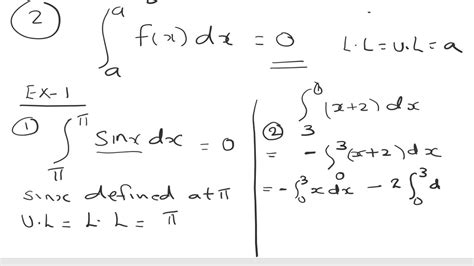 ② ∫_a^a f(x) dx = 0 L.L = U.L = a
Ex-1
① ∫_π^π sinx dx = 0
sinx defined at π
U.L = L.L = π
② ∫_3^0 (x+2) dx
= - ∫_0^3 (x+2) dx
= - ∫_0^3 x dx - 2 ∫_0^3 d